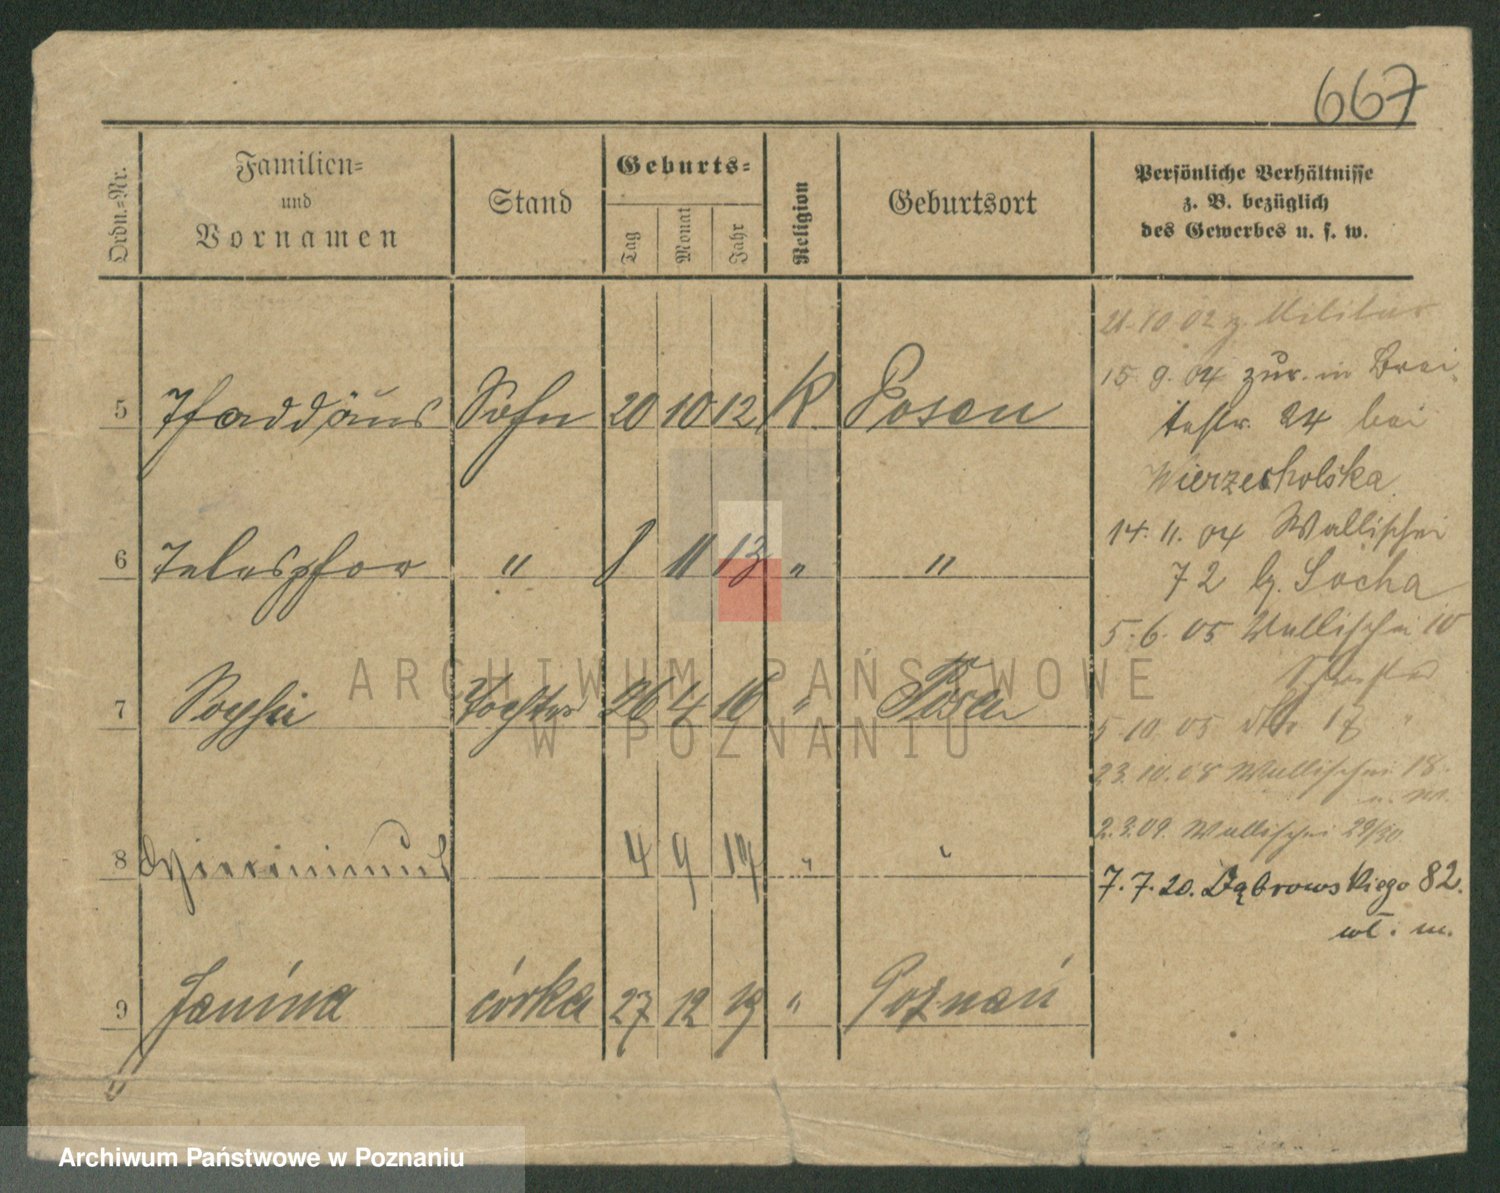 667
Ordn.-Nr.
Familien-
und
Vornamen
Stand
Geburts-
Tag
Monat
Jahr
Religion
Geburtsort
Persönliche Verhältnisse
z. B. bezüglich
des Gewerbes u. s. w.
21.10.02 z. Militär
15.9.04 zur. in Brei-
5 Thaddäus Sohn 20 10 12 K Posen
testr. 24 bei
Wierzecholska
14.11.04 Wallischei
6 Telesphor " 8 11 13 " "
72 b. Socha
5.6.05 Wallischei 10
7 Sophie Tochter 26 4 16 " Posen
5.10.05 17 "
23.10.08 Wallischei 18
2.3.09. Wallischei 29/30
8 Hieronimus 4 9 17 " "
7.7.20. Dąbrowskiego 82.
wł. m.
9 Janina córka 27 12 19 " Poznań
ARCHIWUM PAŃSTWOWE
W POZNANIU
Archiwum Państwowe w Poznaniu